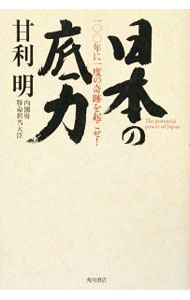 日本の
底力
一〇〇年に一度の奇跡を起こせ!
The potential
power of Japan
甘利 明
内閣府
特命担当大臣
角川書店